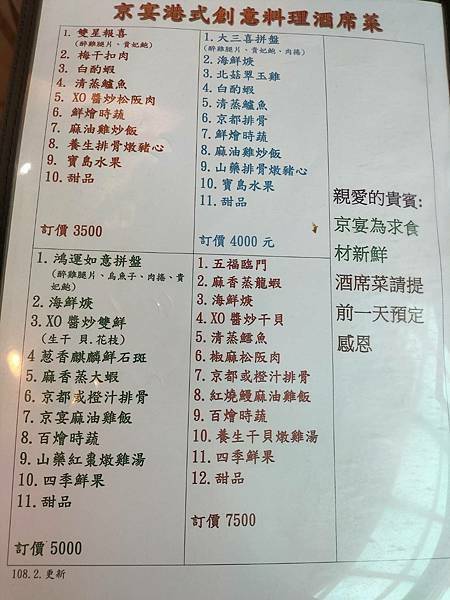 京宴港式創意料理酒席菜
1. 雙星報喜
(醉雞腿片、貴妃鮑)
2. 梅干扣肉
3. 白酌蝦
4. 清蒸鱸魚
5. XO 醬炒松阪肉
6. 鮮燴時蔬
7. 麻油雞炒飯
8. 養生排骨燉豬心
9. 寶島水果
10. 甜品
訂價 3500
1. 大三喜拼盤
(醉雞腿片、貴妃鮑、肉捲)
2. 海鮮焿
3. 北菇翠玉雞
4. 白酌蝦
5. 清蒸鱸魚
6. 京都排骨
7. 鮮燴時蔬
8. 麻油雞炒飯
9. 山藥排骨燉豬心
10. 寶島水果
11. 甜品
訂價 4000 元
1. 鴻運如意拼盤
(醉雞腿片、烏魚子、肉捲、貴
妃鮑)
2. 海鮮焿
3. XO 醬炒雙鮮
(生干 貝.花枝)
4 蔥香麒麟鮮石斑
5. 麻香蒸大蝦
6. 京都或橙汁排骨
7. 京宴麻油雞飯
8. 百燴時蔬
9. 山藥紅棗燉雞湯
10. 四季鮮果
11. 甜品
訂價 5000
1. 五福臨門
2. 麻香蒸龍蝦
3. 海鮮焿
4. XO 醬炒干貝
5. 清蒸鱈魚
6. 椒麻松阪肉
7. 京都或橙汁排骨
8. 紅燒鰻麻油雞飯
9. 百燴時蔬
10. 養生干貝燉雞湯
11. 四季鮮果
12. 甜品
訂價 7500
親愛的貴賓:
京宴為求食
材新鮮
酒席菜請提
前一天預定
感恩
108.2.更新